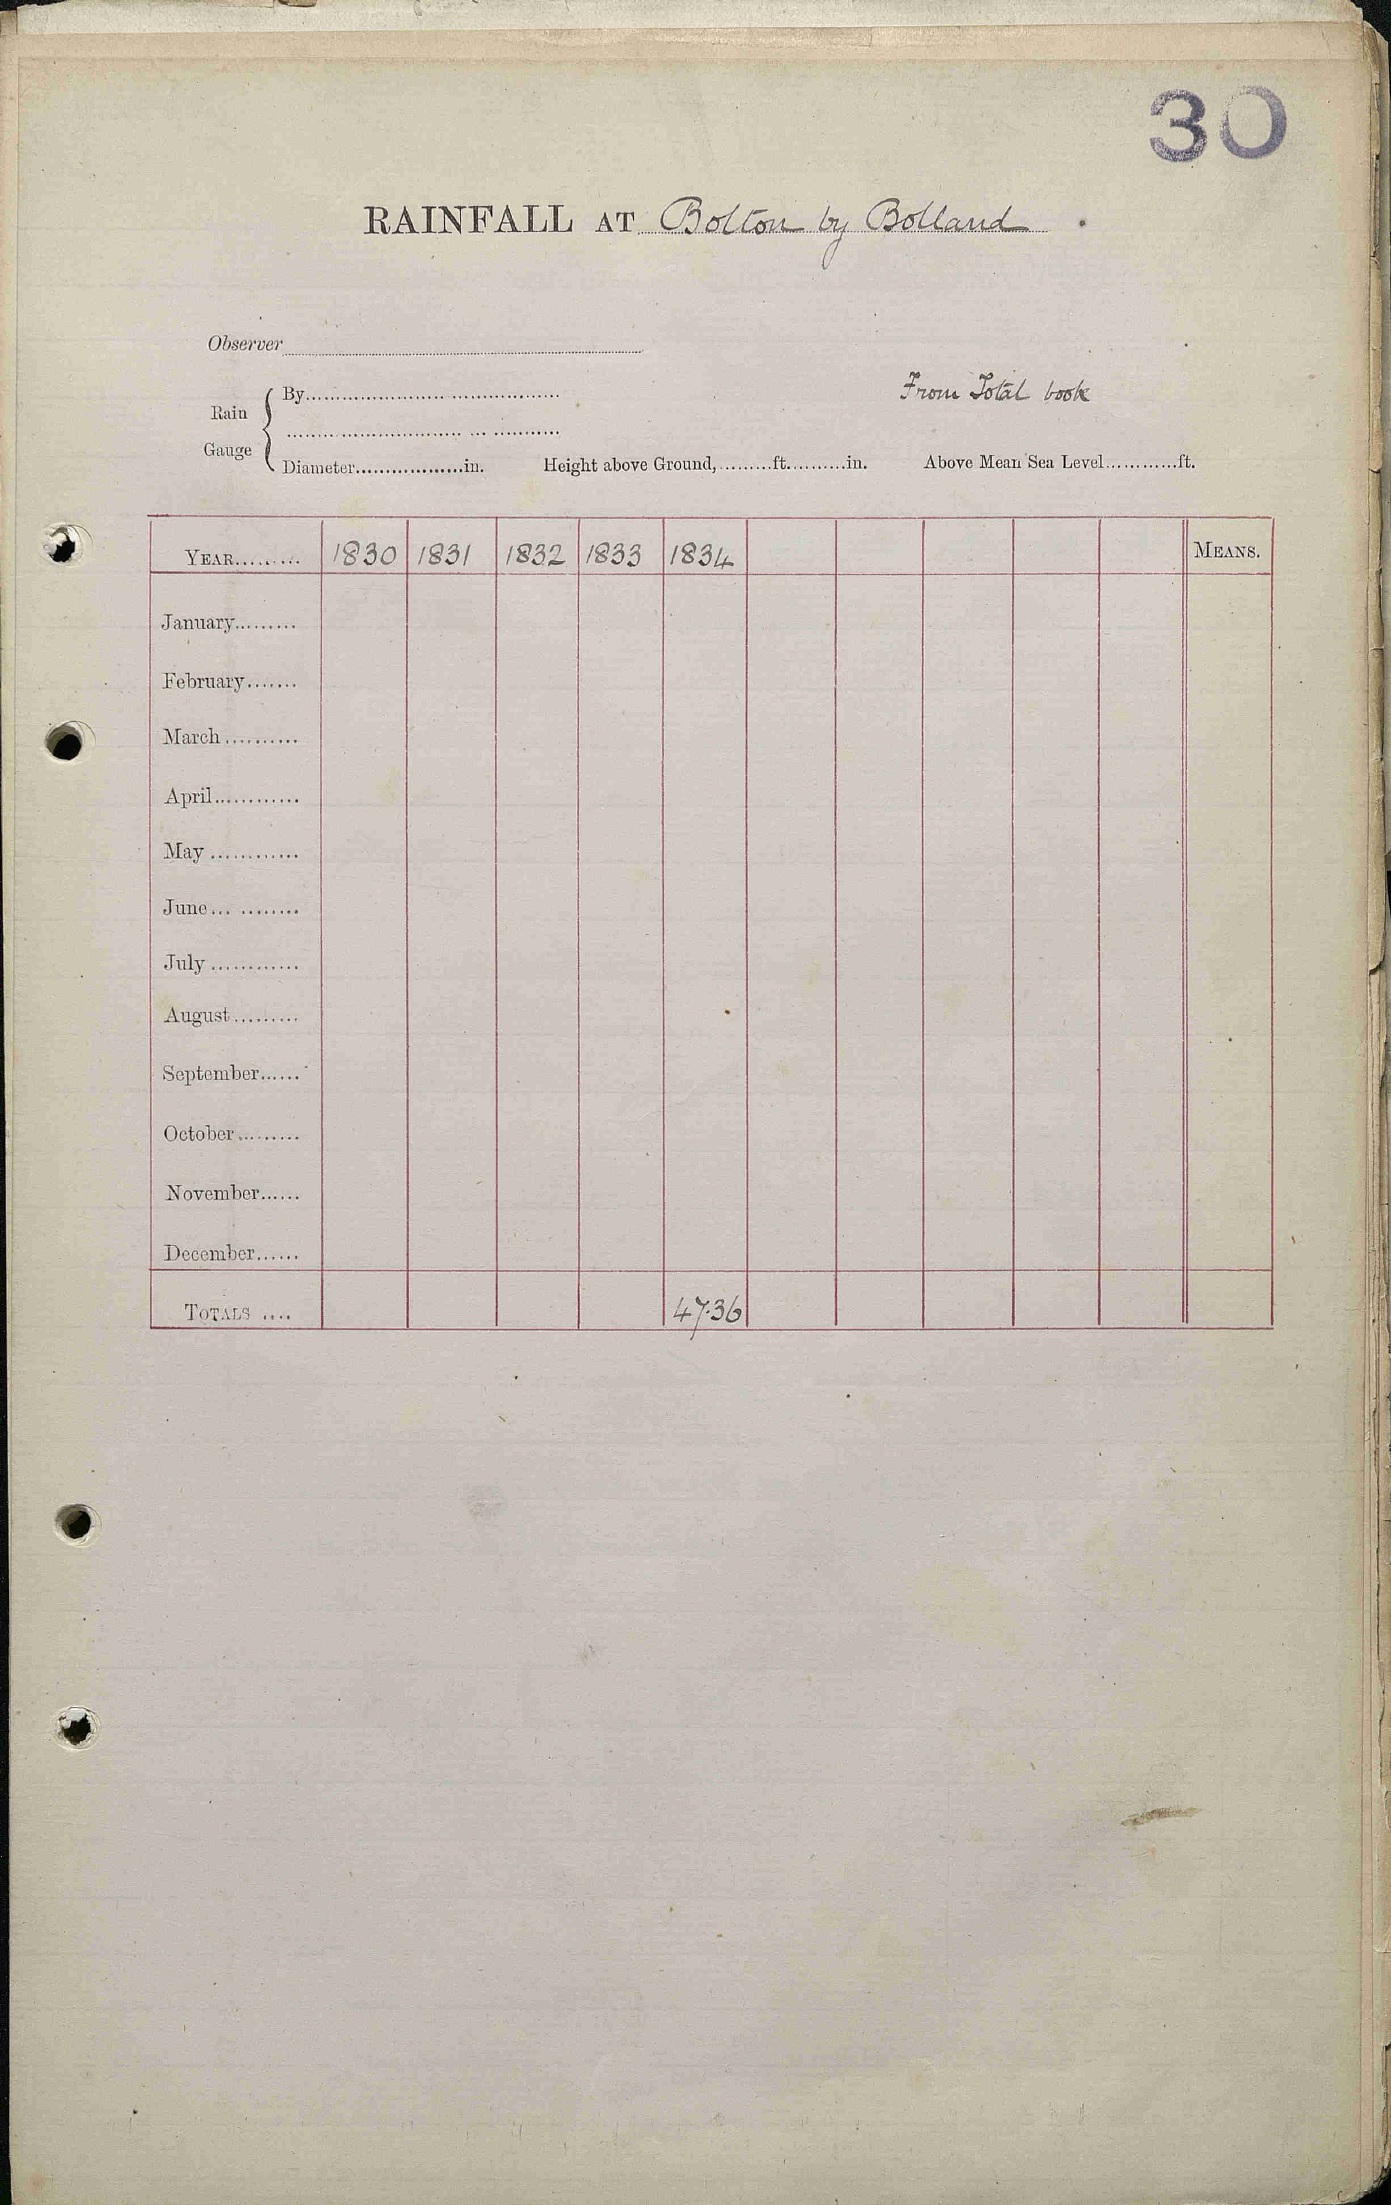 30
RAINFALL AT Bolton by Bolland
Observer
From Total book
Rain Gauge
By
Diameter..................in. Height above Ground,.........ft..........in. Above Mean Sea Level............ft.
YEAR......... 1830 1831 1832 1833 1834 MEANS.
January.........
February.......
March..........
April............
May............
June... ........
July............
August.........
September......
October.........
November......
December......
TOTALS .... 47.36